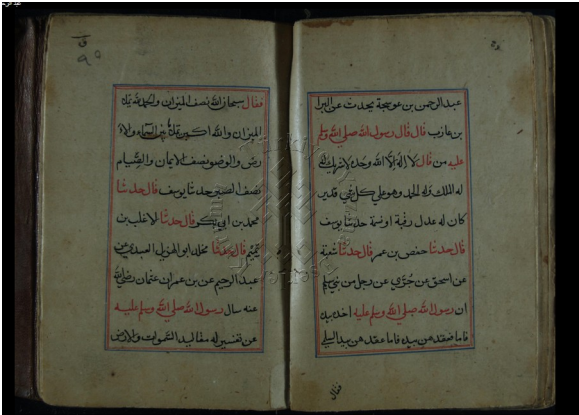 عبد الرحمن بن عوسجة يحدث عن البرا
بن عازب قال قال رسول الله صلي الله وسلم
عليه من قال لا اله الا الله وحده لا شريك له
له الملك وله الحمد وهو علي كل شي قدير
كان له عدل رقبة او نسمة حدثنا يوسف
قال حدثنا حفص بن عمر قال حدثنا شعبة
عن اسحق عن جري عن رجل من بني سليم
ان رسول الله صلي الله وسلم عليه اخذ بيده
فاما عقد عن بيده فاما عقد عن بيد السلي
فقال
فقال سبحان الله نصف الميزان والحمد لله تملأ
الميزان والله اكبر تملأ بين السماء والا
رض والوضو نصف الايمان والصيام
نصف الصبر حدثنا يوسف قال حدثنا
محمد بن ابي بكر قال حدثنا لاغلب بن
تميم قال حدثنا مخلد ابو الهذيل العبدي عن
عبد الرحيم عن بن عمر ان عثمان رضي الله
عنه سال رسول الله صلي الله وسلم عليه
عن تفسير له مقاليد السموات والارض